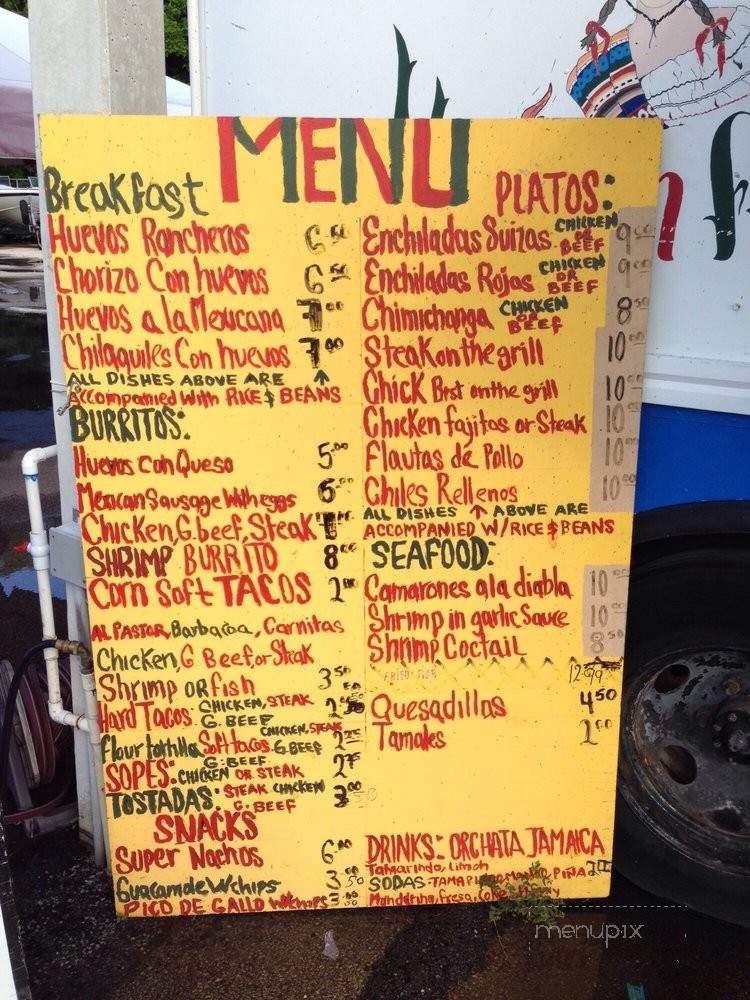 MENU
Breakfast
Huevos Rancheros 6 50
Chorizo Con huevos 6 50
Huevos a la Mexicana 7 00
Chilaquiles Con huevos 7 00
ALL DISHES ABOVE ARE ↑
Accompanied With RICE $ BEANS
BURRITOS:
Huevos Con Queso 5.00
Mexican Sausage With eggs 6.00
Chicken, G. beef, Steak 7
SHRIMP BURRITO 8
Corn Soft TACOS 2
AL PASTOR, Barbacoa, Carnitas
Chicken, G Beef, or Steak
Shrimp OR fish 3 50
Hard Tacos: CHICKEN, STEAK
G. BEEF
flour tortilla Soft tacos CHICKEN, STEAK
G. BEEF
SOPES: G. BEEF
CHICKEN OR STEAK
TOSTADAS: STEAK CHICKEN 3
G. BEEF
SNACKS
Super Nachos 6.00
Guacamole W/chips 3
PICO DE GALLO W/chips
PLATOS:
Enchiladas Suizas CHICKEN OR BEEF 9
Enchiladas Rojas CHICKEN OR BEEF 9
Chimichanga CHICKEN OR BEEF 8 50
Steak on the grill 10
Chick Brst on the grill 10
Chicken fajitas or Steak 10
Flautas de Pollo 10
Chiles Rellenos 10
ALL DISHES ↑ ABOVE ARE
ACCOMPANIED W/RICE $ BEANS
SEAFOOD:
Camarones a la diabla 10
Shrimp in garlic Sauce 10
Shrimp Coctail 8 50
12.99
Quesadillas 4 50
Tamales 2 00
DRINKS: ORCHATA JAMAICA
Tamarindo, Limon
SODAS: PIÑA
Mandarina, Fresa,
menupix